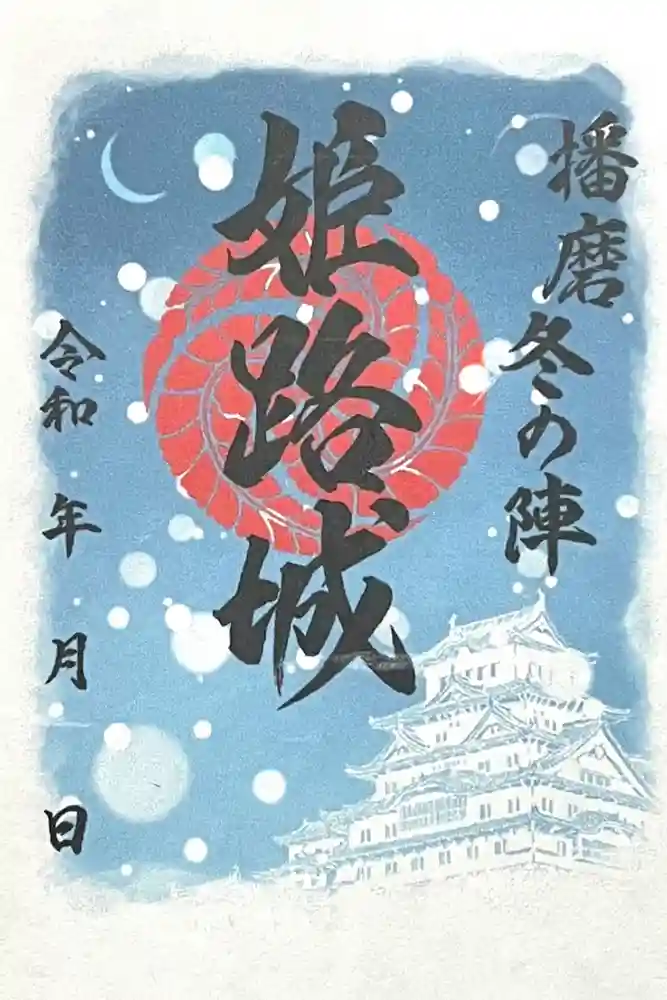 播磨冬の陣
姫路城
令和 年 月 日